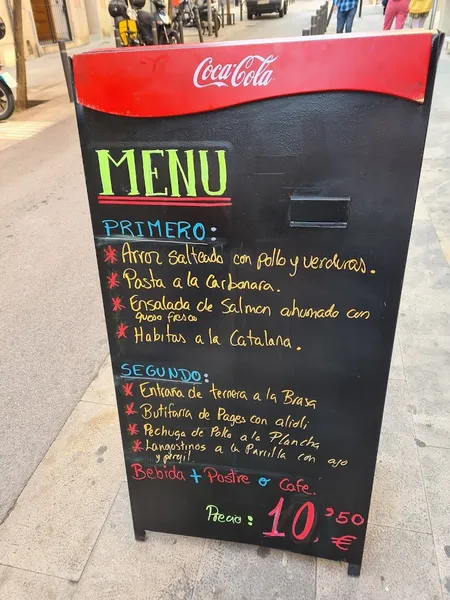 Coca-Cola
MENU
PRIMERO:
* Arroz salteado con pollo y verduras.
* Pasta a la carbonara.
* Ensalada de Salmon ahumado con
queso fresco
* Habitas a la Catalana.
SEGUNDO:
* Entraña de ternera a la Brasa
* Butifarra de Pages con alioli
* Pechuga de Pollo a la Plancha
* Langostinos a la Parrilla con ajo
y perejil
Bebida + Postre o Cafe.
Precio: 10,'50
€